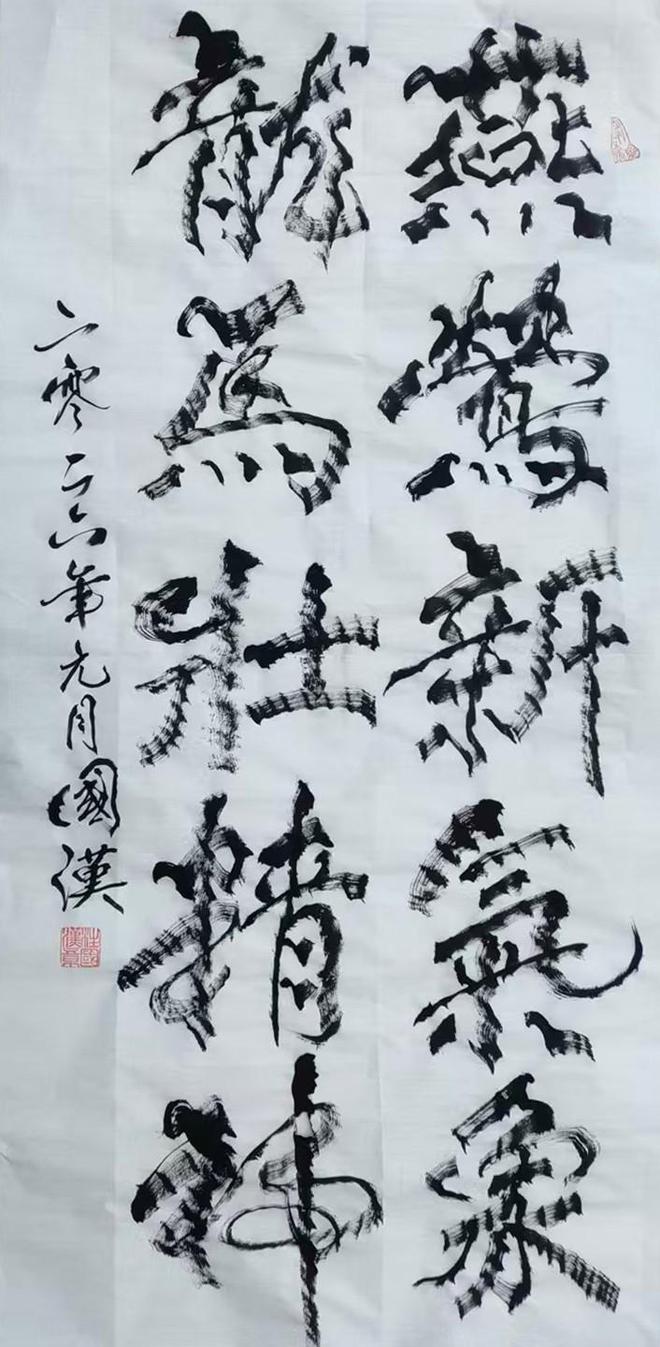 燕鶯新氣象
龍馬壯精神
二零二六年元月國漢